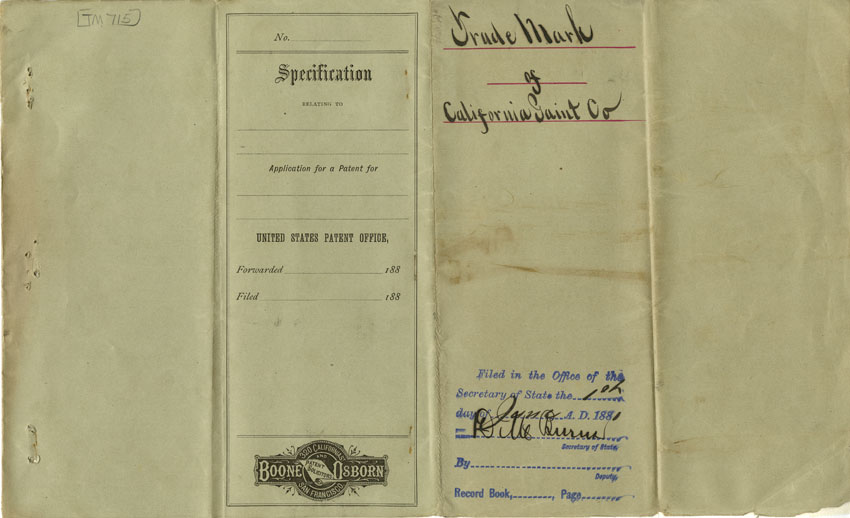 [TM 715]
No.
Specification
RELATING TO
Application for a Patent for
UNITED STATES PATENT OFFICE,
Forwarded 188
Filed 188
320 CALIFORNIA ST
AND
BOONE OSBORN
PATENT SOLICITORS
SAN FRANCISCO
Trade Mark
of
California Paint Co
Filed in the Office of the
Secretary of State the 1st
day of June A. D. 1881
D M Burns
Secretary of State.
By
Deputy.
Record Book, , Page